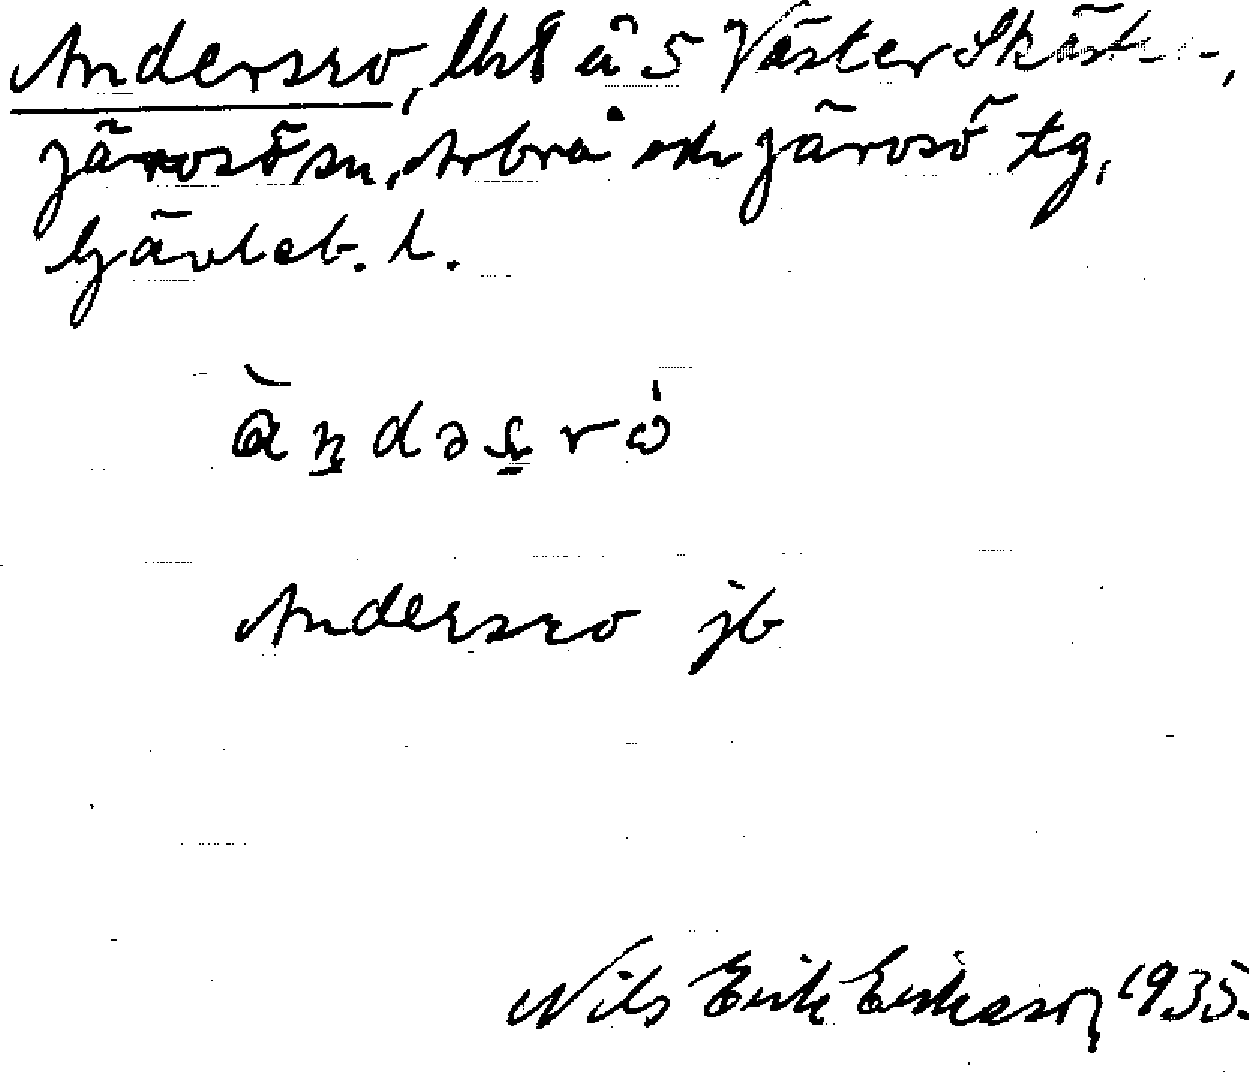 Andersro, lht å 5 Väster Skäst--,
Järvsö sn, Arbrå och Järvsö tg,
Gävleb. l.
àn̠dəs̠rω̍
Andersro jb
Nils Erik Eriksson 1935.